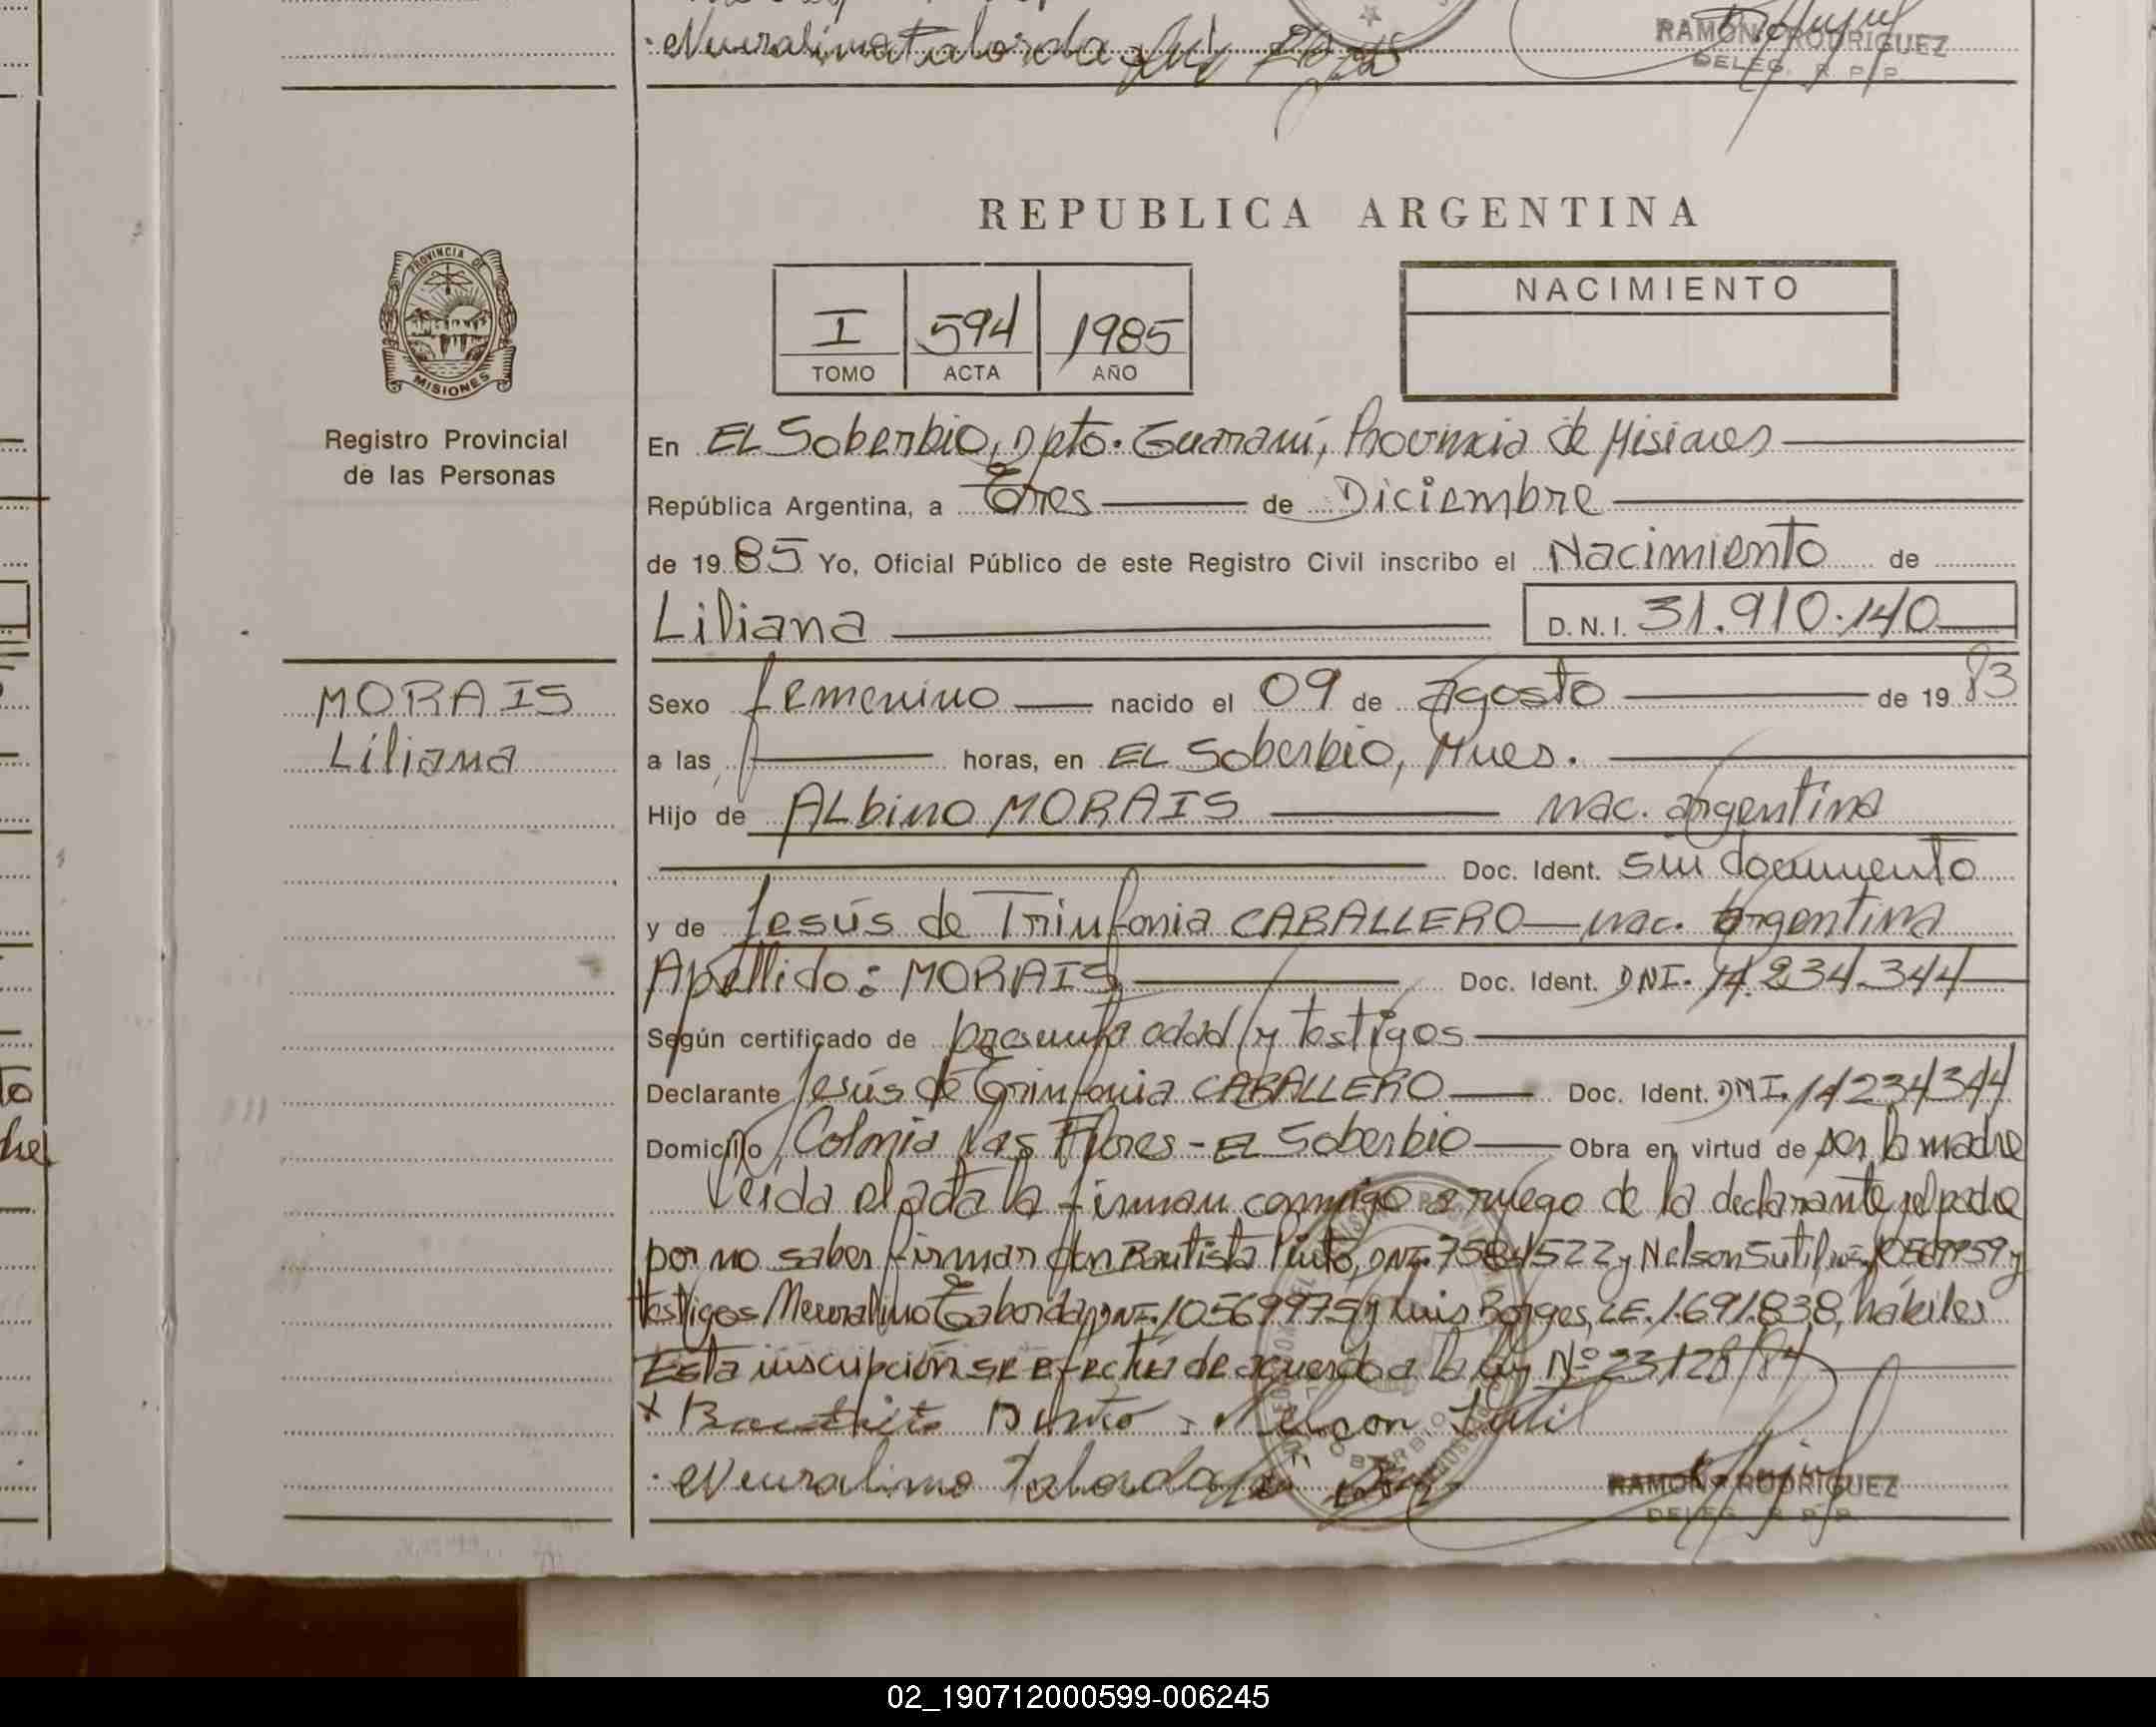 Neuralimo Taborda
RAMON RODRIGUEZ
DELEG. R. P. P.
REPUBLICA ARGENTINA
PROVINCIA DE
MISIONES
Registro Provincial
de las Personas
I 594 1985
TOMO ACTA AÑO
NACIMIENTO
En EL Soberbio, Dpto. Guaraní, Provincia de Misiones
República Argentina, a Tres de Diciembre
de 1985 Yo, Oficial Público de este Registro Civil inscribo el Nacimiento de
Liliana D.N.I. 31.910.140
MORAIS
Liliana
Sexo femenino nacido el 09 de agosto de 1983
a las horas, en EL Soberbio, Mnes.
Hijo de ALbino MORAIS nac. argentina
Doc. Ident. sin documento
y de Jesús de Triunfonia CABALLERO nac. argentina
Apellido: MORAIS Doc. Ident. DNI. 14.234.344
Según certificado de presunta edad y testigos
Declarante Jesús de CABALLERO Doc. Ident. DNI. 14234344
Domicilio Colonia Las Flores - EL Soberbio Obra en virtud de ser la madre
Leida el acta la firman conmigo a ruego de la declarante y el padre
por no saber firmar don Bautista Pinto, DNI. 7584522 y Nelson Sutil
testigos Taborda, DNI. 10569975 y Luis Borges, LE. 1.691.838, hábiles
Esta inscripción se efectúa de acuerdo a la ley Nº 23128/84
x Bautista Pinto Nelson Sutil
Neuralimo Taborda
RAMON RODRIGUEZ
DELEG. R. P. P.
02_190712000599-006245